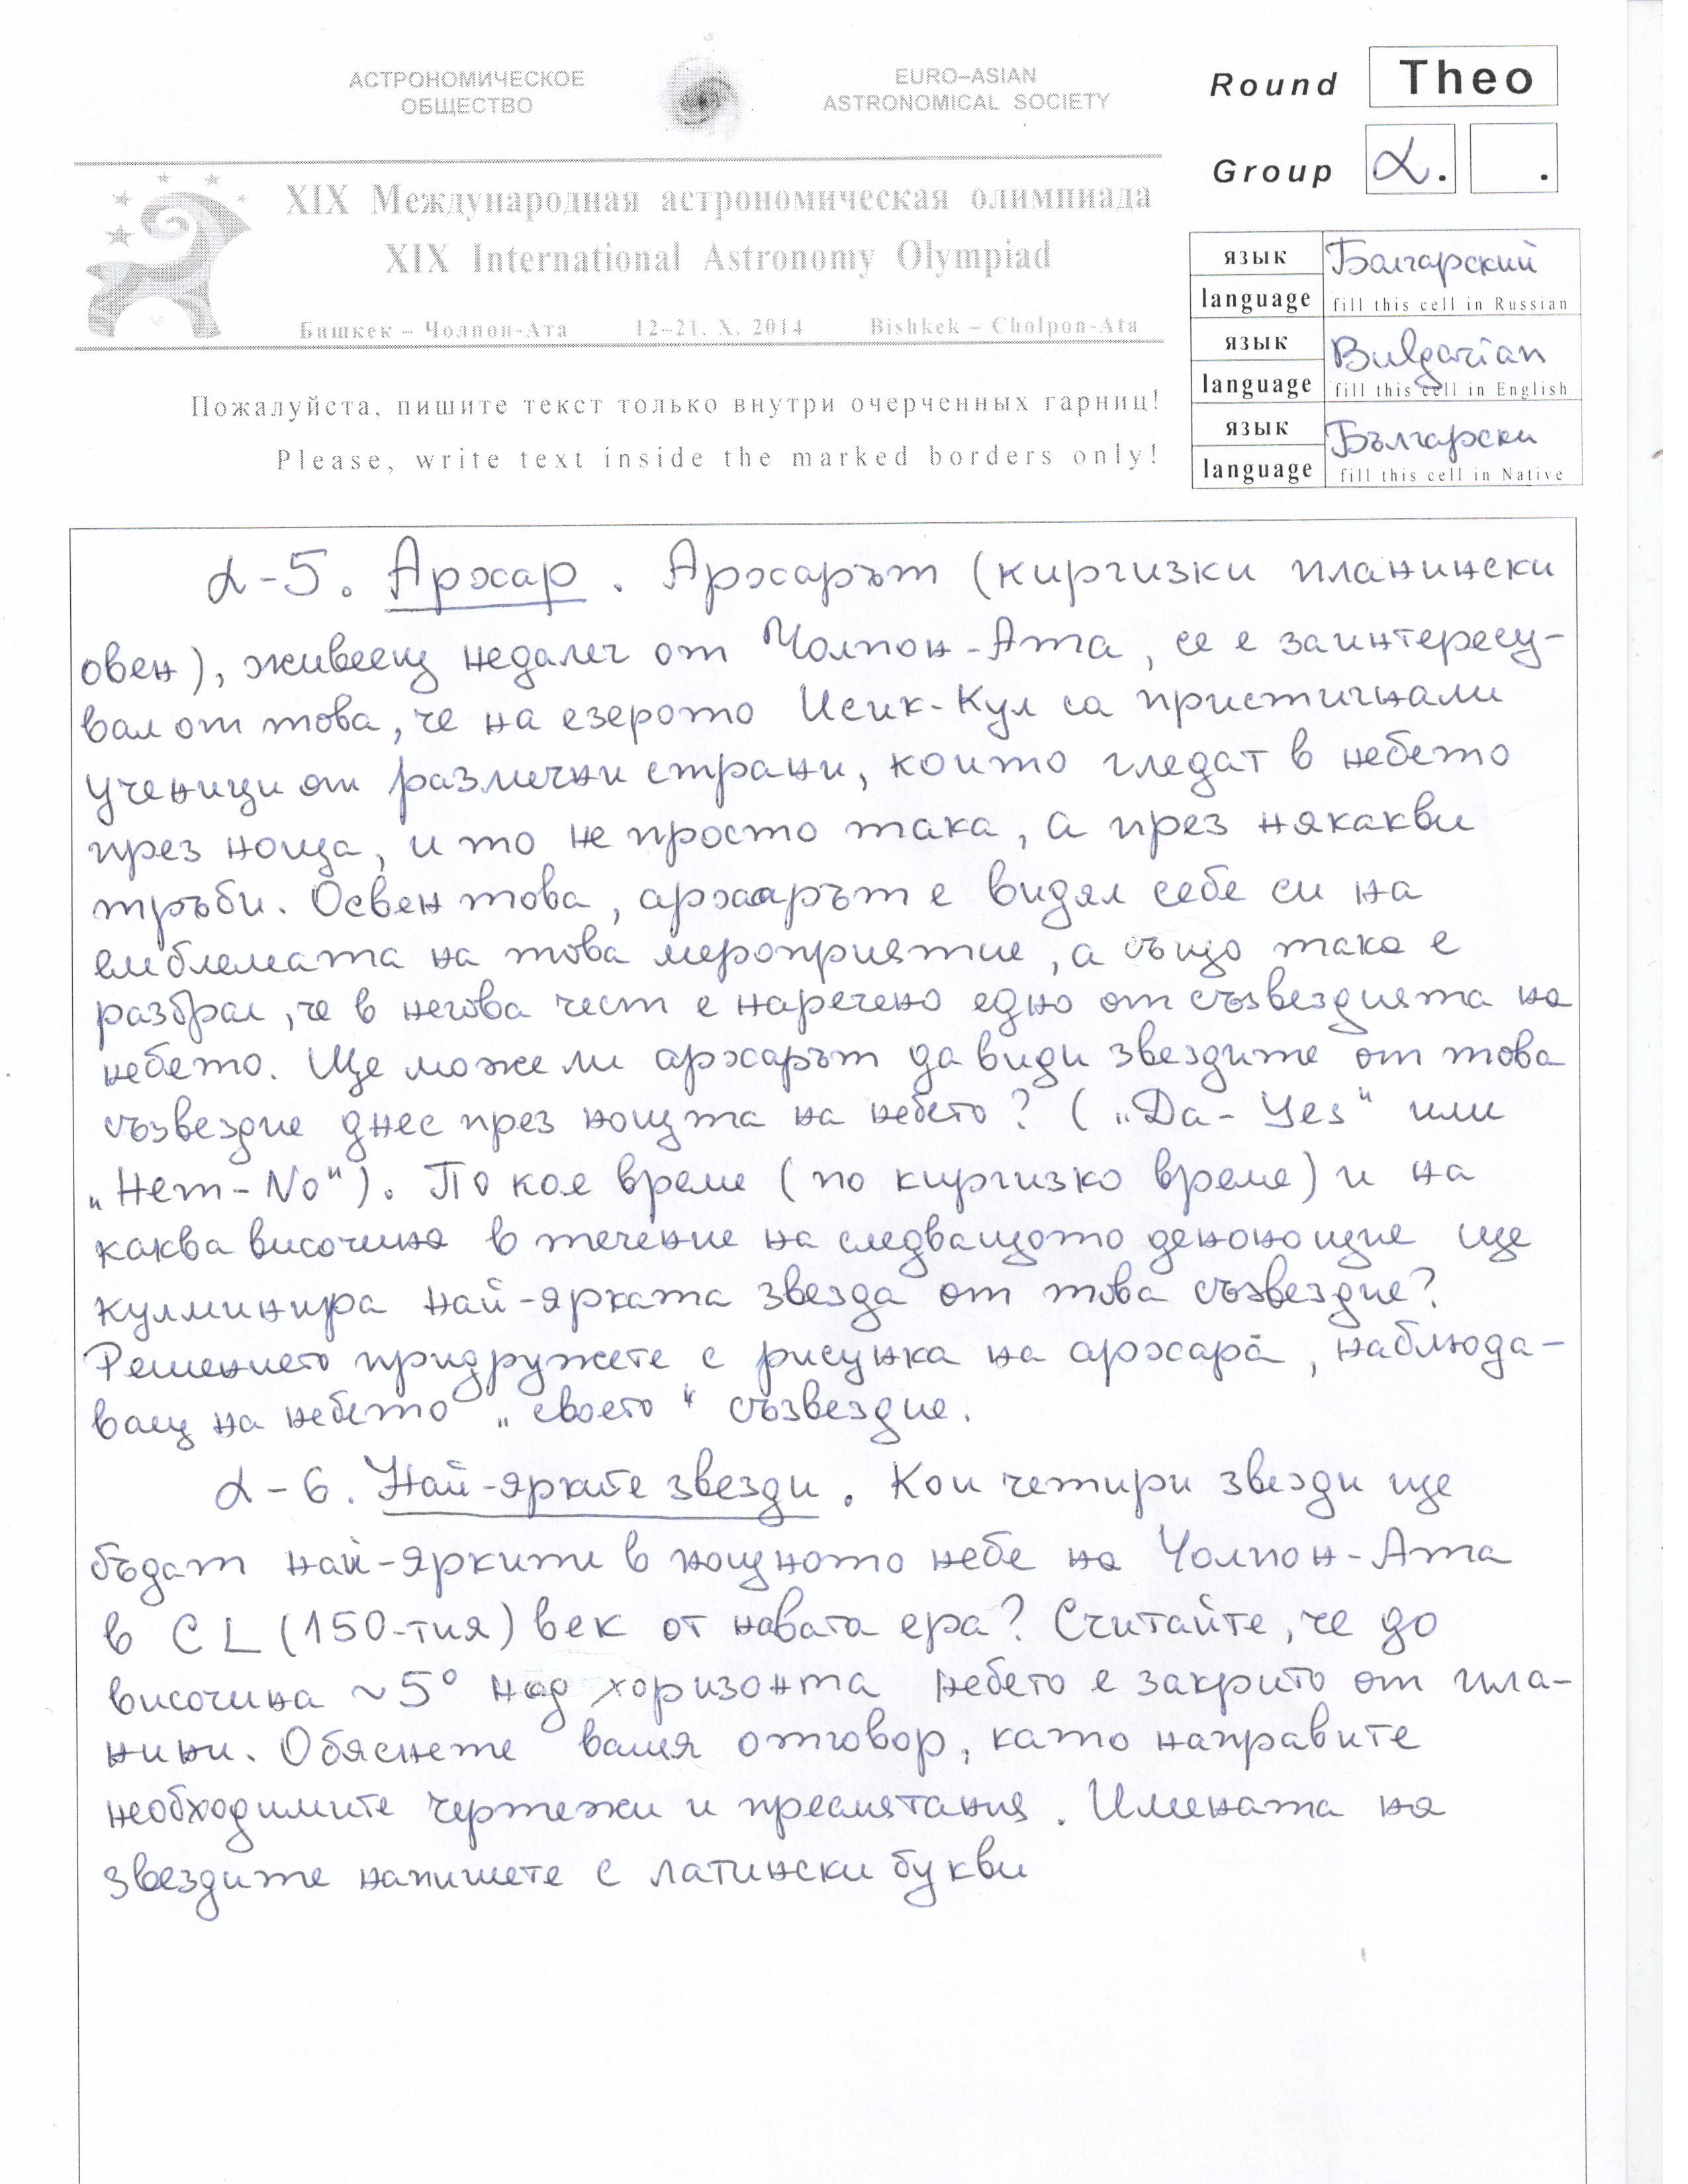 АСТРОНОМИЧЕСКОЕ
ОБЩЕСТВО
EURO–ASIAN
ASTRONOMICAL SOCIETY
Round Theo
Group α. .
XIX Международная астрономическая олимпиада
XIX International Astronomy Olympiad
Бишкек – Чолпон-Ата 12–21. X. 2014 Bishkek – Cholpon-Ata
язык
language
Болгарский
fill this cell in Russian
язык
language
Bulgarian
fill this cell in English
язык
language
Български
fill this cell in Native
Пожалуйста, пишите текст только внутри очерченных гарниц!
Please, write text inside the marked borders only!
α-5. Архар. Архарът (киргизки планински
овен), живеещ недалеч от Чолпон-Ата, се е заинтересу-
вал от това, че на езерото Исик-Кул са пристигнали
ученици от различни страни, които гледат в небето
през ноща, и то не просто така, а през някакви
тръби. Освен това, архарът е видял себе си на
емблемата на това мероприятие, а също така е
разбрал, че в негова чест е наречено едно от съзвездията на
небето. Ще може ли архарът да види звездите от това
съзвездие днес през нощта на небето? („Да - Yes“ или
„Нет - No“). По кое време (по киргизко време) и на
каква височина в течение на следващото денонощие ще
кулминира най-ярката звезда от това съзвездие?
Решението придружете с рисунка на архара, наблюда-
ващ на небето „своето“ съзвездие.
α-6. Най-ярките звезди. Кои четири звезди ще
бъдат най-яркити в нощното небе на Чолпон-Ата
в CL (150-тия) век от новата ера? Считайте, че до
височина ~5° над хоризонта небето е закрито от пла-
нини. Обяснете вашия отговор, като направите
необходимите чертежи и пресмятания. Имената на
звездите напишете с латински букви